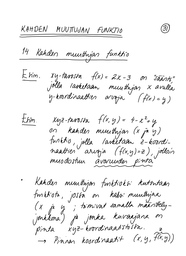 KAHDEN MUUTTUJAN FUNKTIO
14 Kahden muuttujan funktio
Esim. xy-tasossa f(x) = 2x - 3 on "sääntö"
jolla lasketaan muuttujan x avulla
y-koordinaattien arvoja (f(x) = y)
Esim xyz-tasossa f(x,y) = 4 - x² - y
on kahden muuttujan (x ja y)
funktio, jolla lasketaan z-koordi-
naattien arvoja (f(x,y) = z), jolloin
muodostuu avaruuden pinta
• Kahden muuttujan funktioksi kutsutaan
funktiota, jossa on kaksi muuttujaa
(x ja y ; toimivat omalla määrittely-
joukolla) ja jonka kuvaajana on
pinta xyz-koordinaatistossa.
→ Pinnan koordinaatit (x, y, f(x,y))